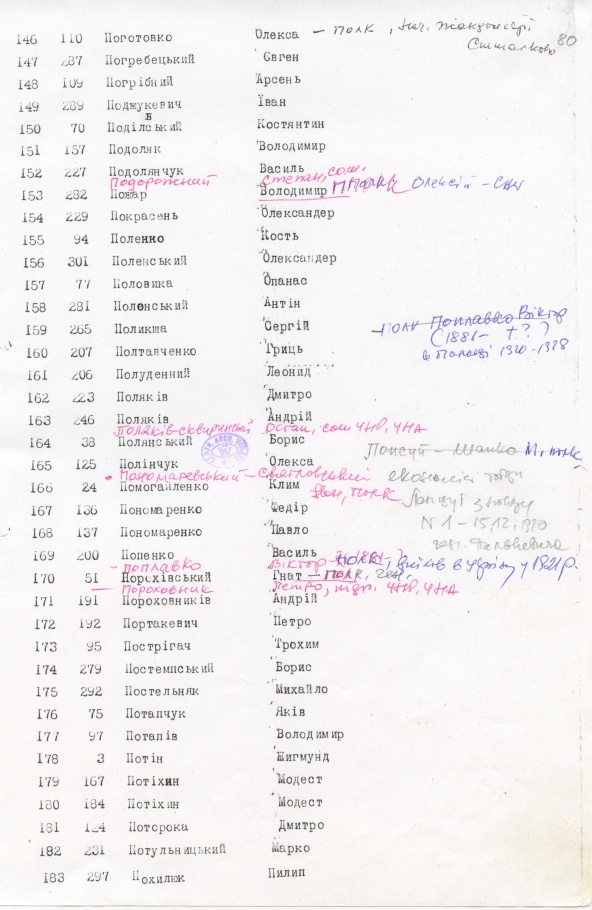 80
146 110 Поготовко Олекса – полк,
147 287 Погребецький Євген
148 109 Погрібний Арсень
149 289 Поджукевич Іван
в
150 70 Поділський Костянтин
151 157 Подоляк Володимир
152 227 Подолянчук Василь
Подорожний Степан, сот.
153 282 Пожар Володимир Олексій – СНУ
154 229 Покрасень Олександер
155 94 Поленко Кость
156 301 Поленський Олександер
157 77 Половика Опанас
158 281 Полонський Антін
159 265 Поликша Сергій
полк Поплавко Віктор
(1881- †?)
160 207 Полтавченко Гриць
1920-1928
161 206 Полуденний Леонид
162 223 Поляків Дмитро
163 246 Поляків Андрій
Поляків-Сквиринський Остап, сот ЧНР, ЧНА
164 38 Полянський Борис
165 125 Полінчук Олекса
Пономаревський-Святловський
166 24 Помогайленко Клим
полк
167 136 Пономаренко Федір
N 1 – 15.12.1920
168 137 Пономаренко Павло
169 200 Попенко Василь
– Поплавко Віктор
170 51 Порохівський Гнат – полк, ген.
– Пороховник Петро, ЧНР, ЧНА
171 191 Пороховників Андрій
172 192 Портакевич Петро
173 95 Постригач Трохим
174 279 Постемпський Борис
175 292 Постельняк Михайло
176 75 Потапчук Яків
177 97 Потапів Володимир
178 3 Потін Жигмунд
179 167 Потіхин Модест
180 184 Потіхин Модест
181 124 Поторока Дмитро
182 231 Потульницький Марко
183 297 Похилюк Пилип